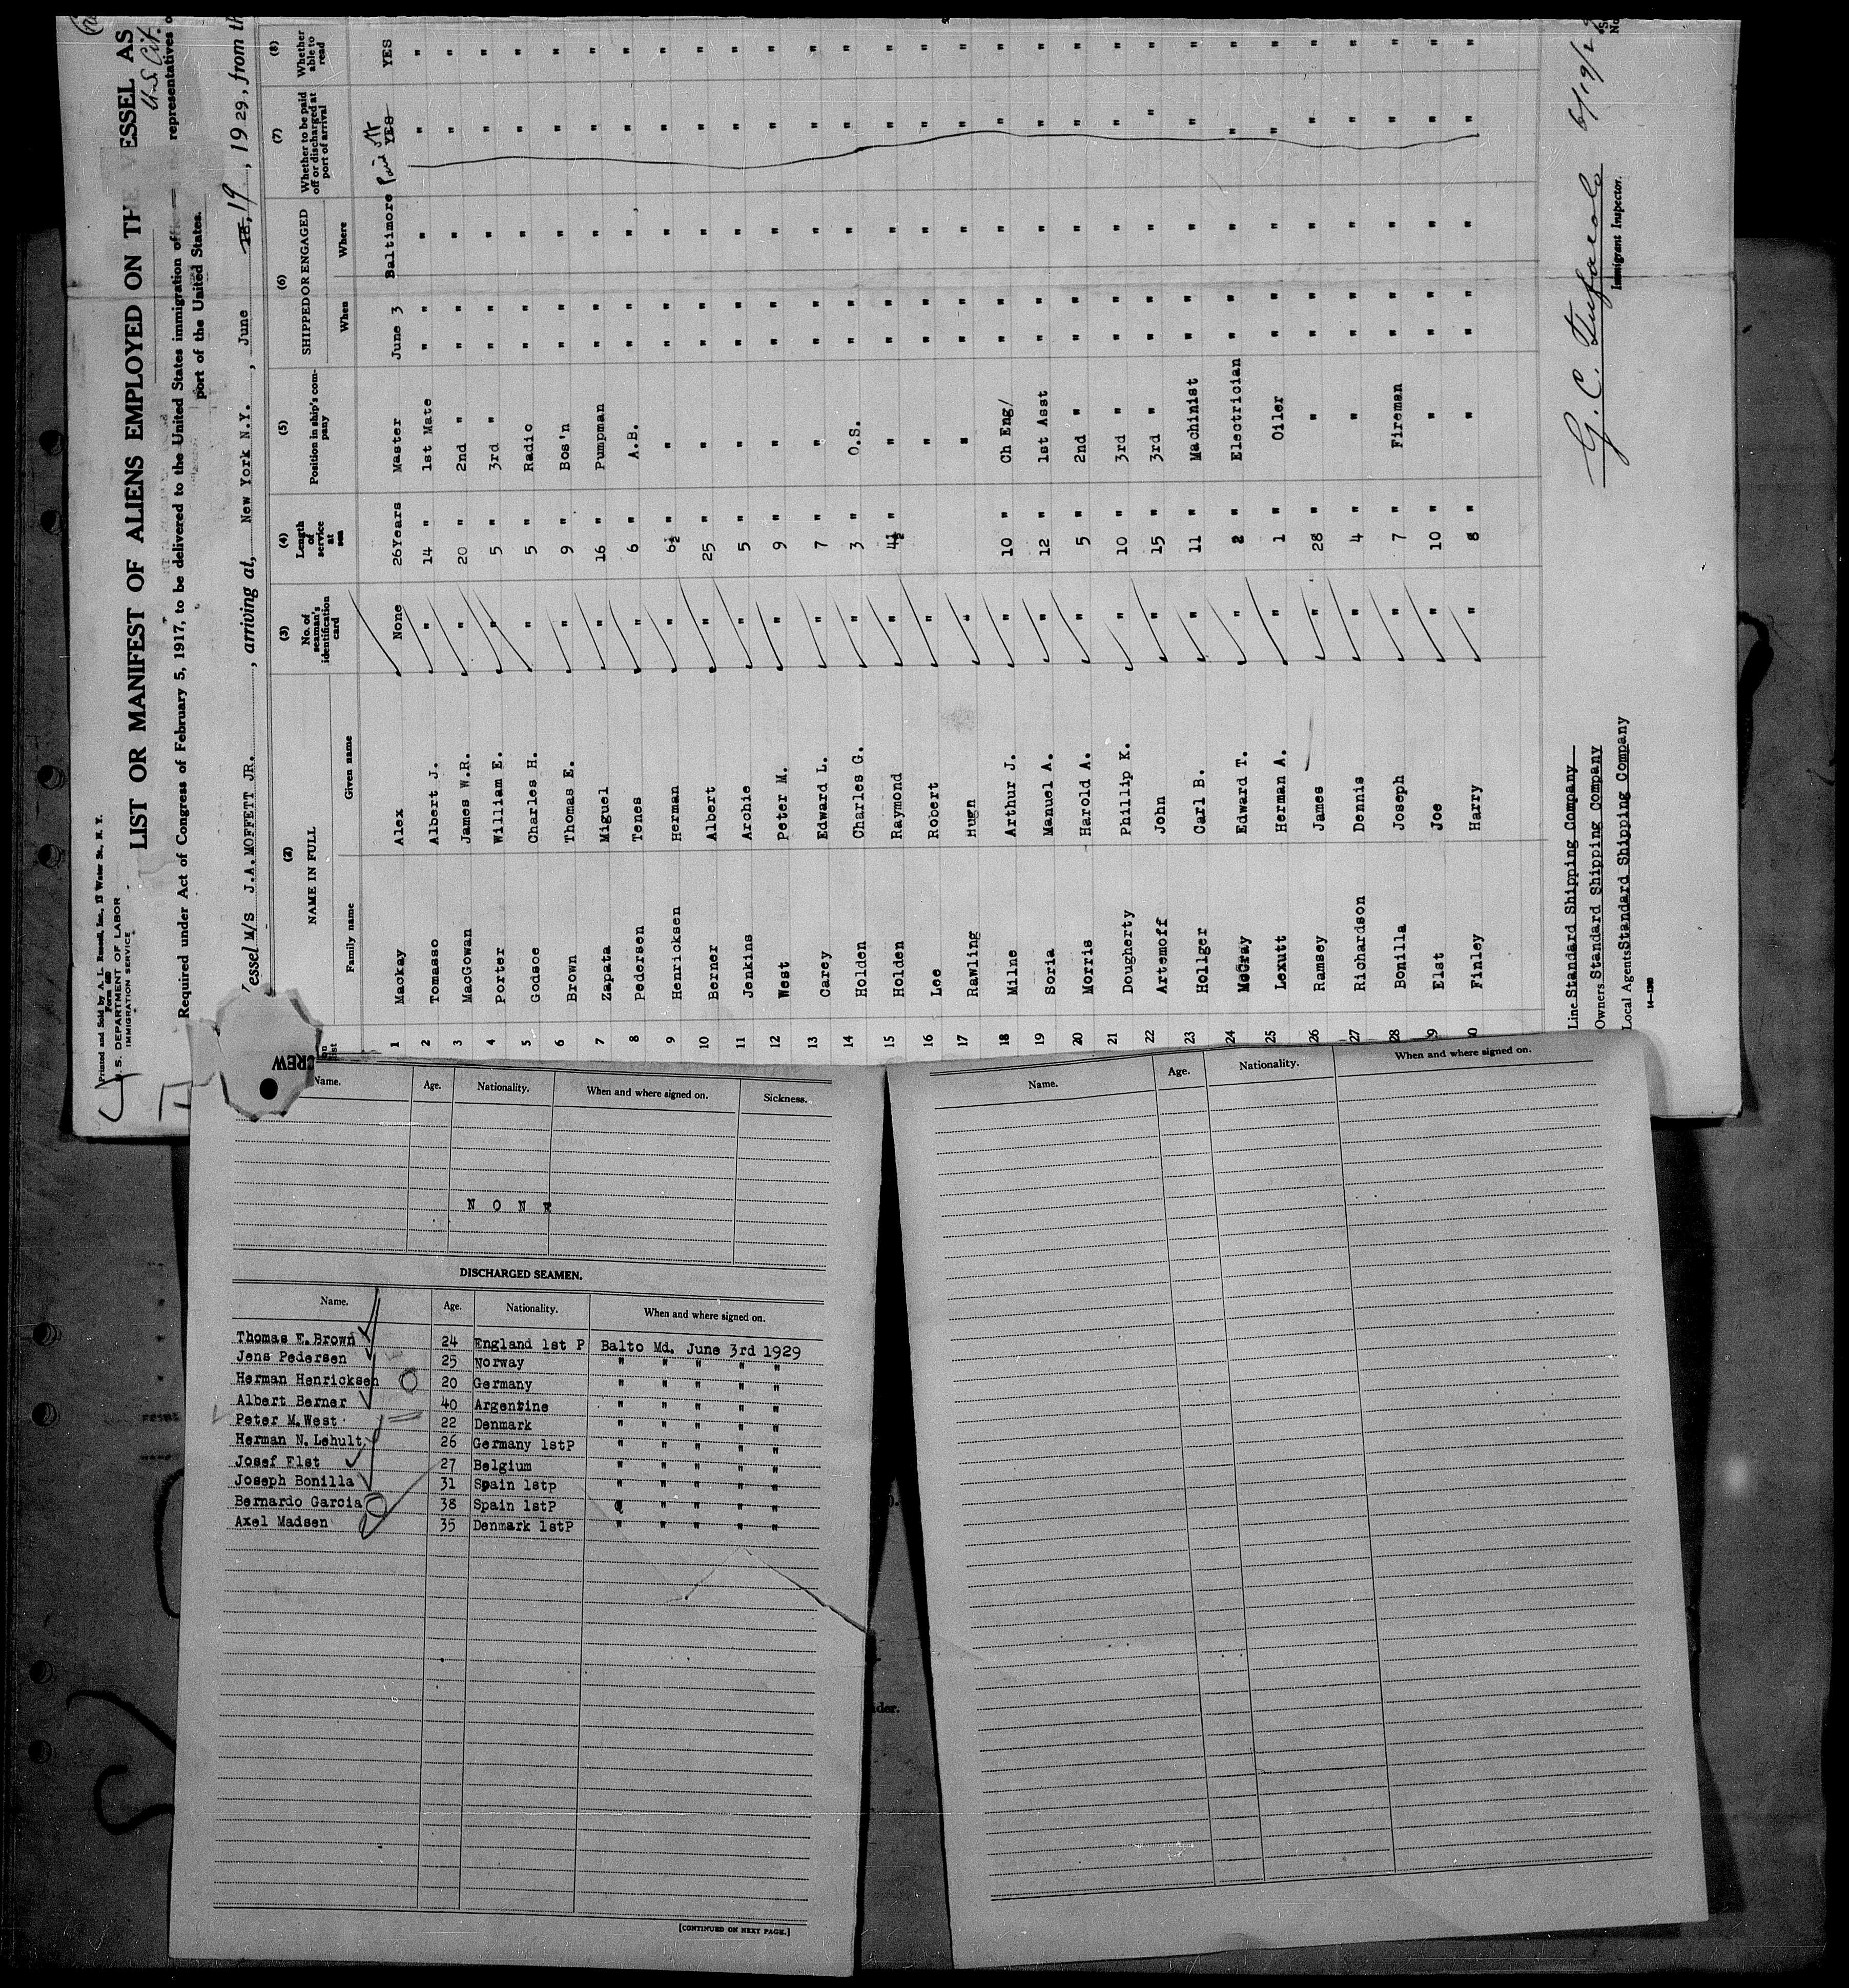 Printed and Sold by A. L. Russell, Inc., 12 Water St., N. Y.
Form 689
U. S. DEPARTMENT OF LABOR
IMMIGRATION SERVICE
LIST OR MANIFEST OF ALIENS EMPLOYED ON THE VESSEL AS
U.S. Cit.
Required under Act of Congress of February 5, 1917, to be delivered to the United States immigration representatives o
port of the United States.
Vessel M/S J.A.MOFFETT JR. , arriving at, New York N.Y. , June 18, 19 , 1929, from th
(2) (3) (4) (5) (6) (7) (8)
NAME IN FULL No. of seaman's identification card Length of service at sea Position in ship's company SHIPPED OR ENGAGED Whether to be paid off or discharged at port of arrival Whether able to read
Family name Given name When Where
1 Mackay Alex None 26Years Master June 3 Baltimore Paid off YES YES
2 Tomasso Albert J. " 14 " 1st Mate " " " " "
3 MacGowan James W.R. " 20 " 2nd " " " " " "
4 Porter William E. " 5 " 3rd " " " " " "
5 Godsoe Charles H. " 5 " Radio " " " " "
6 Brown Thomas E. " 9 " Bos'n " " " " "
7 Zapata Miguel " 16 " Pumpman " " " " "
8 Pedersen Tenes " 6 " A.B. " " " " "
9 Henricksen Herman " 6½ " " " " " " "
10 Berner Albert " 25 " " " " " " "
11 Jenkins Archie " 5 " " " " " " "
12 West Peter M. " 9 " " " " " " "
13 Carey Edward L. " 7 " " " " " " "
14 Holden Charles G. " 3 " O.S. " " " " "
15 Holden Raymond " 4½ " " " " " " "
16 Lee Robert " " " " " " "
17 Rawling Hugh " " " " " " "
18 Milne Arthur J. " 10 " Ch Eng/ " " " " "
19 Soria Manuel A. " 12 " 1st Asst " " " " "
20 Morris Harold A. " 5 " 2nd " " " " " "
21 Dougherty Phillip K. " 10 " 3rd " " " " " "
22 Artemoff John " 15 " 3rd " " " " " "
23 Hollger Carl B. " 11 " Machinist " " " " "
24 McCray Edward T. " 2 " Electrician " " " " "
25 Lexutt Herman A. " 1 " Oiler " " " " "
26 Ramsey James " 28 " " " " " " "
27 Richardson Dennis " 4 " " " " " " "
28 Bonilla Joseph " 7 " Fireman " " " " "
29 Elst Joe " 10 " " " " " " "
30 Finley Harry " 8 " " " " " " "
Line Standard Shipping Company
Owners Standard Shipping Company
Local Agents Standard Shipping Company
14—1243
G. C.
Immigrant Inspector.
CREW
Name. Age. Nationality. When and where signed on. Sickness.
N O N E
DISCHARGED SEAMEN.
Name. Age. Nationality. When and where signed on.
Thomas E.Brown 24 England 1st P Balto Md. June 3rd 1929
Jens Pedersen 25 Norway " " " " "
Herman Henricksen 20 Germany " " " " "
Albert Berner 40 Argentine " " " " "
Peter M.West 22 Denmark " " " " "
Herman N.Lehult 26 Germany 1stP " " " " "
Josef Elst 27 Belgium " " " " "
Joseph Bonilla 31 Spain 1stp " " " " "
Bernardo Garcia 38 Spain 1stP " " " " "
Axel Madsen 35 Denmark 1stP " " " " "
[CONTINUED ON NEXT PAGE.]
Name. Age. Nationality. When and where signed on.